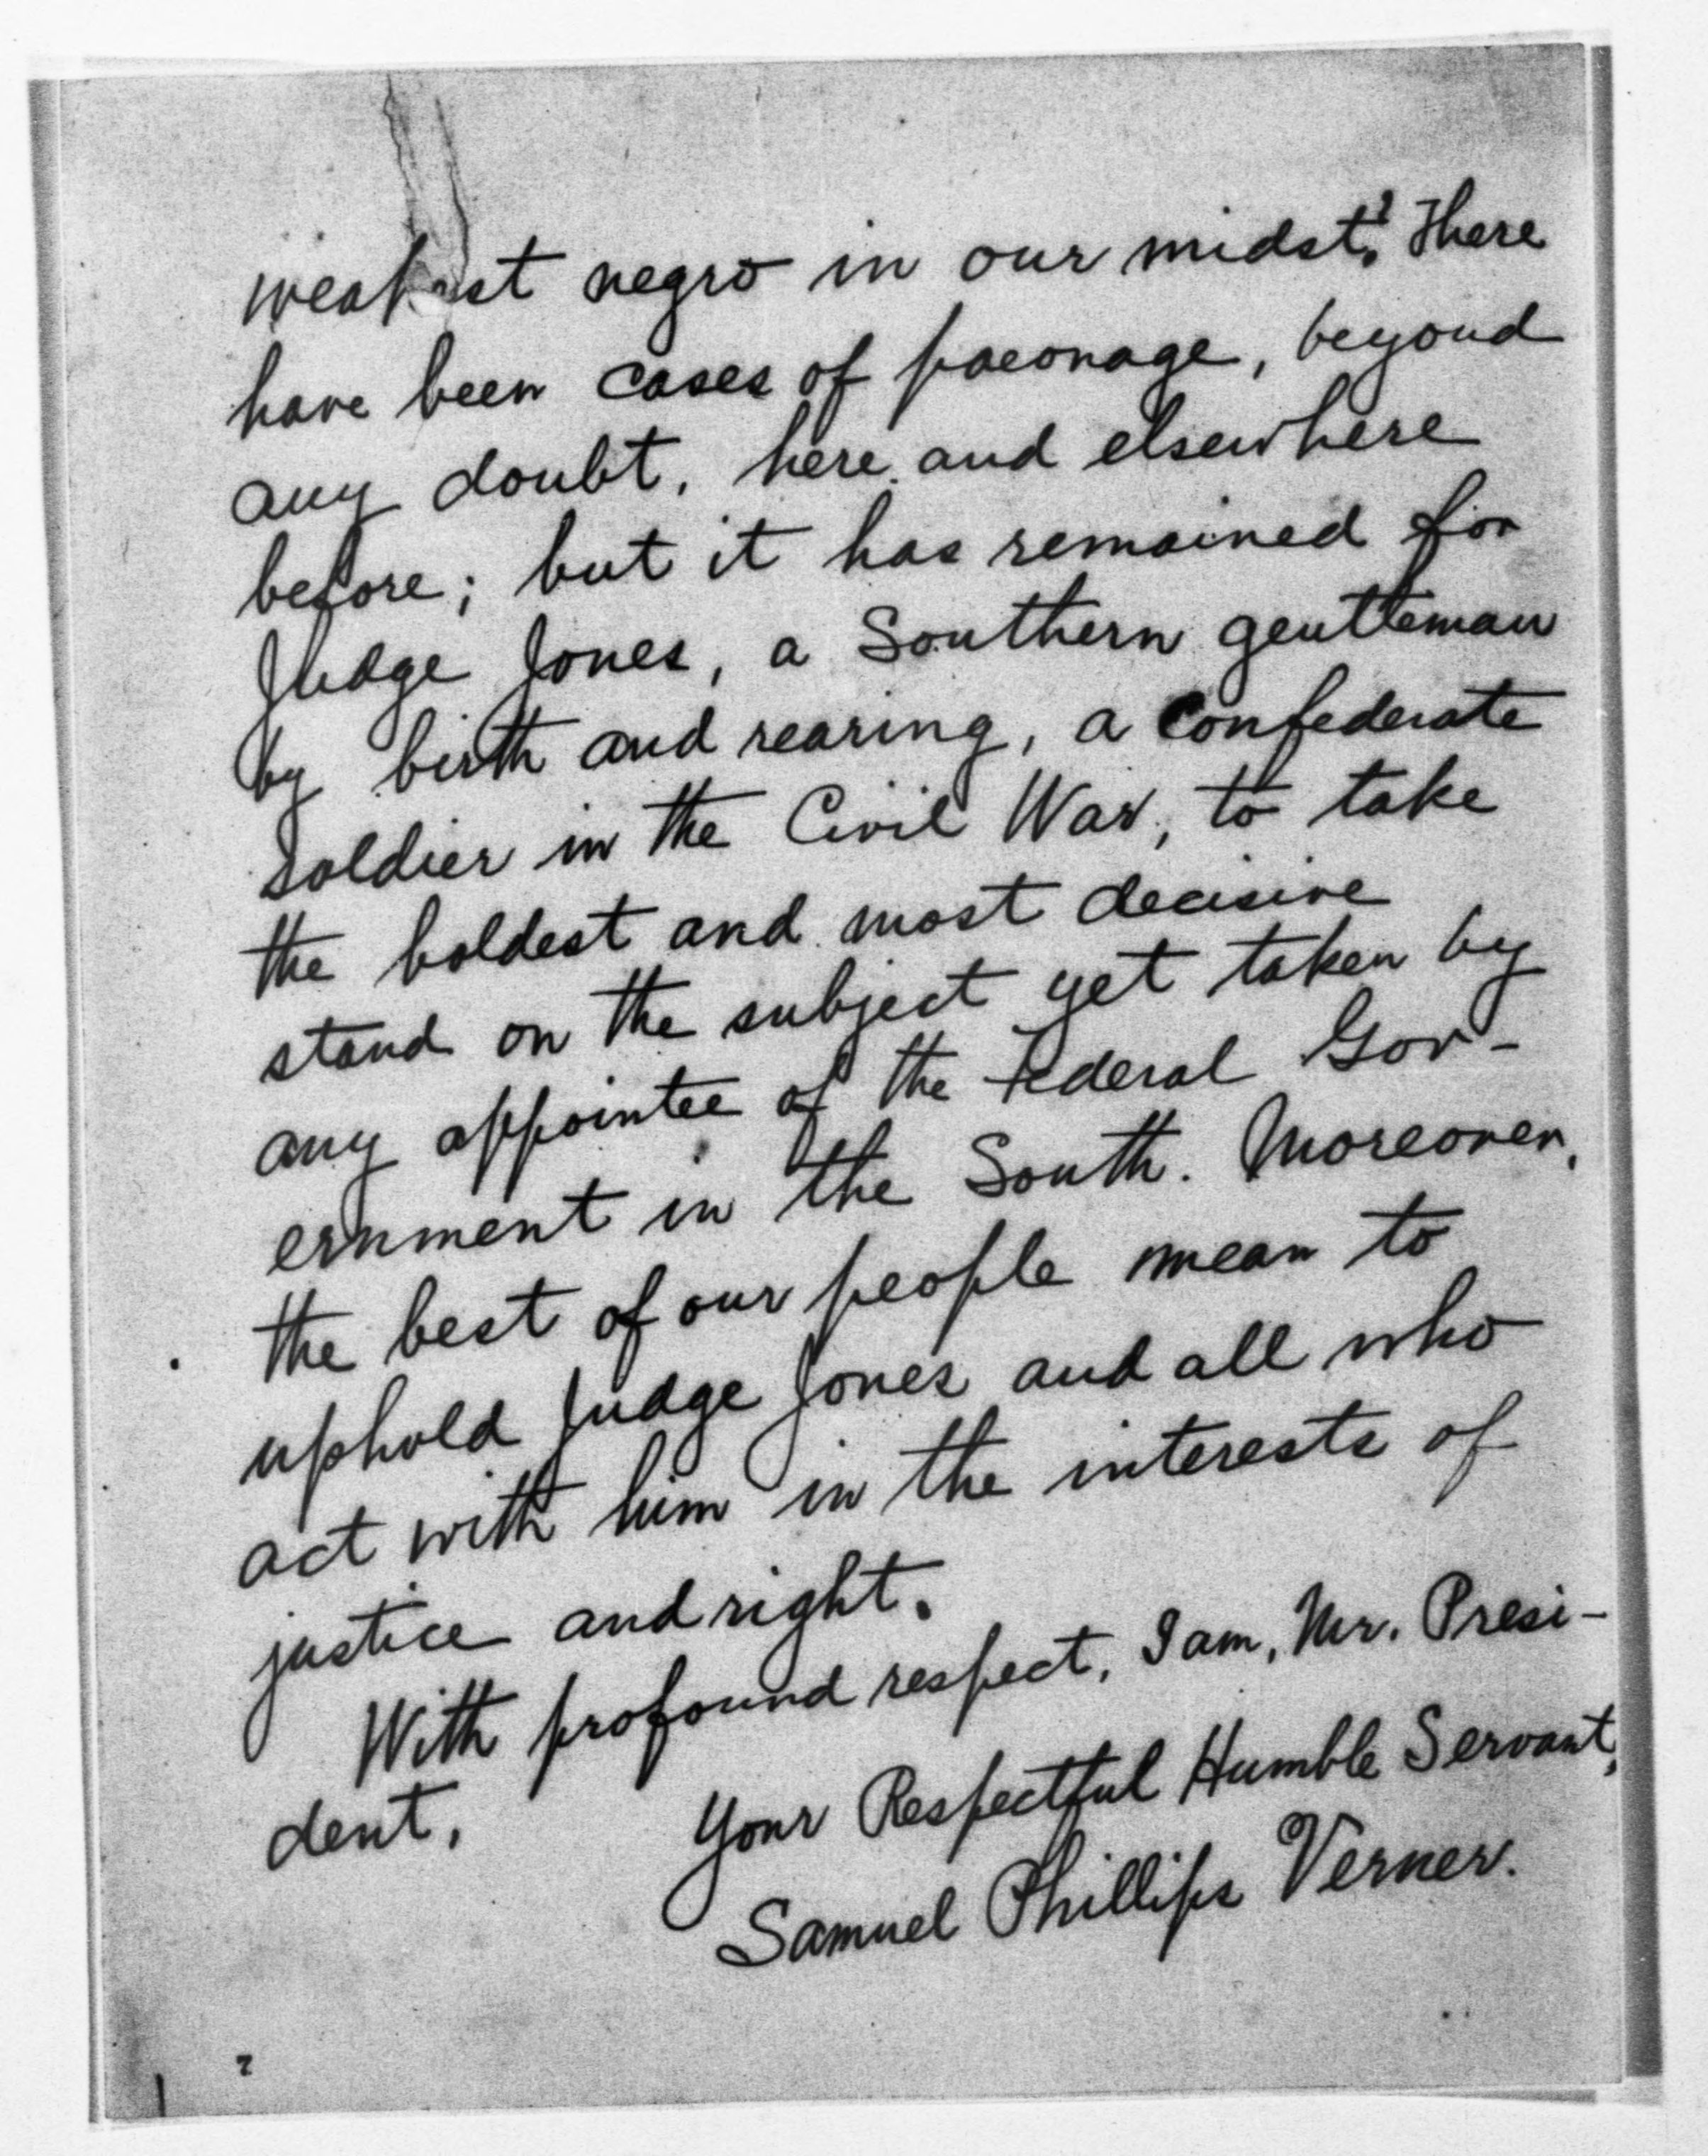 weakest negro in our midst? There
have been cases of paeonage, beyond
any doubt, here and elsewhere
before; but it has remained for
Judge Jones, a Southern gentleman
by birth and rearing, a Confederate
soldier in the Civil War, to take
the boldest and most decisive
stand on the subject yet taken by
any appointee of the Federal Gov-
ernment in the South. Moreover,
the best of our people mean to
uphold Judge Jones and all who
act with him in the interests of
justice and right.
With profound respect, I am, Mr. Presi-
dent,
Your Respectful Humble Servant,
Samuel Phillips Verner.